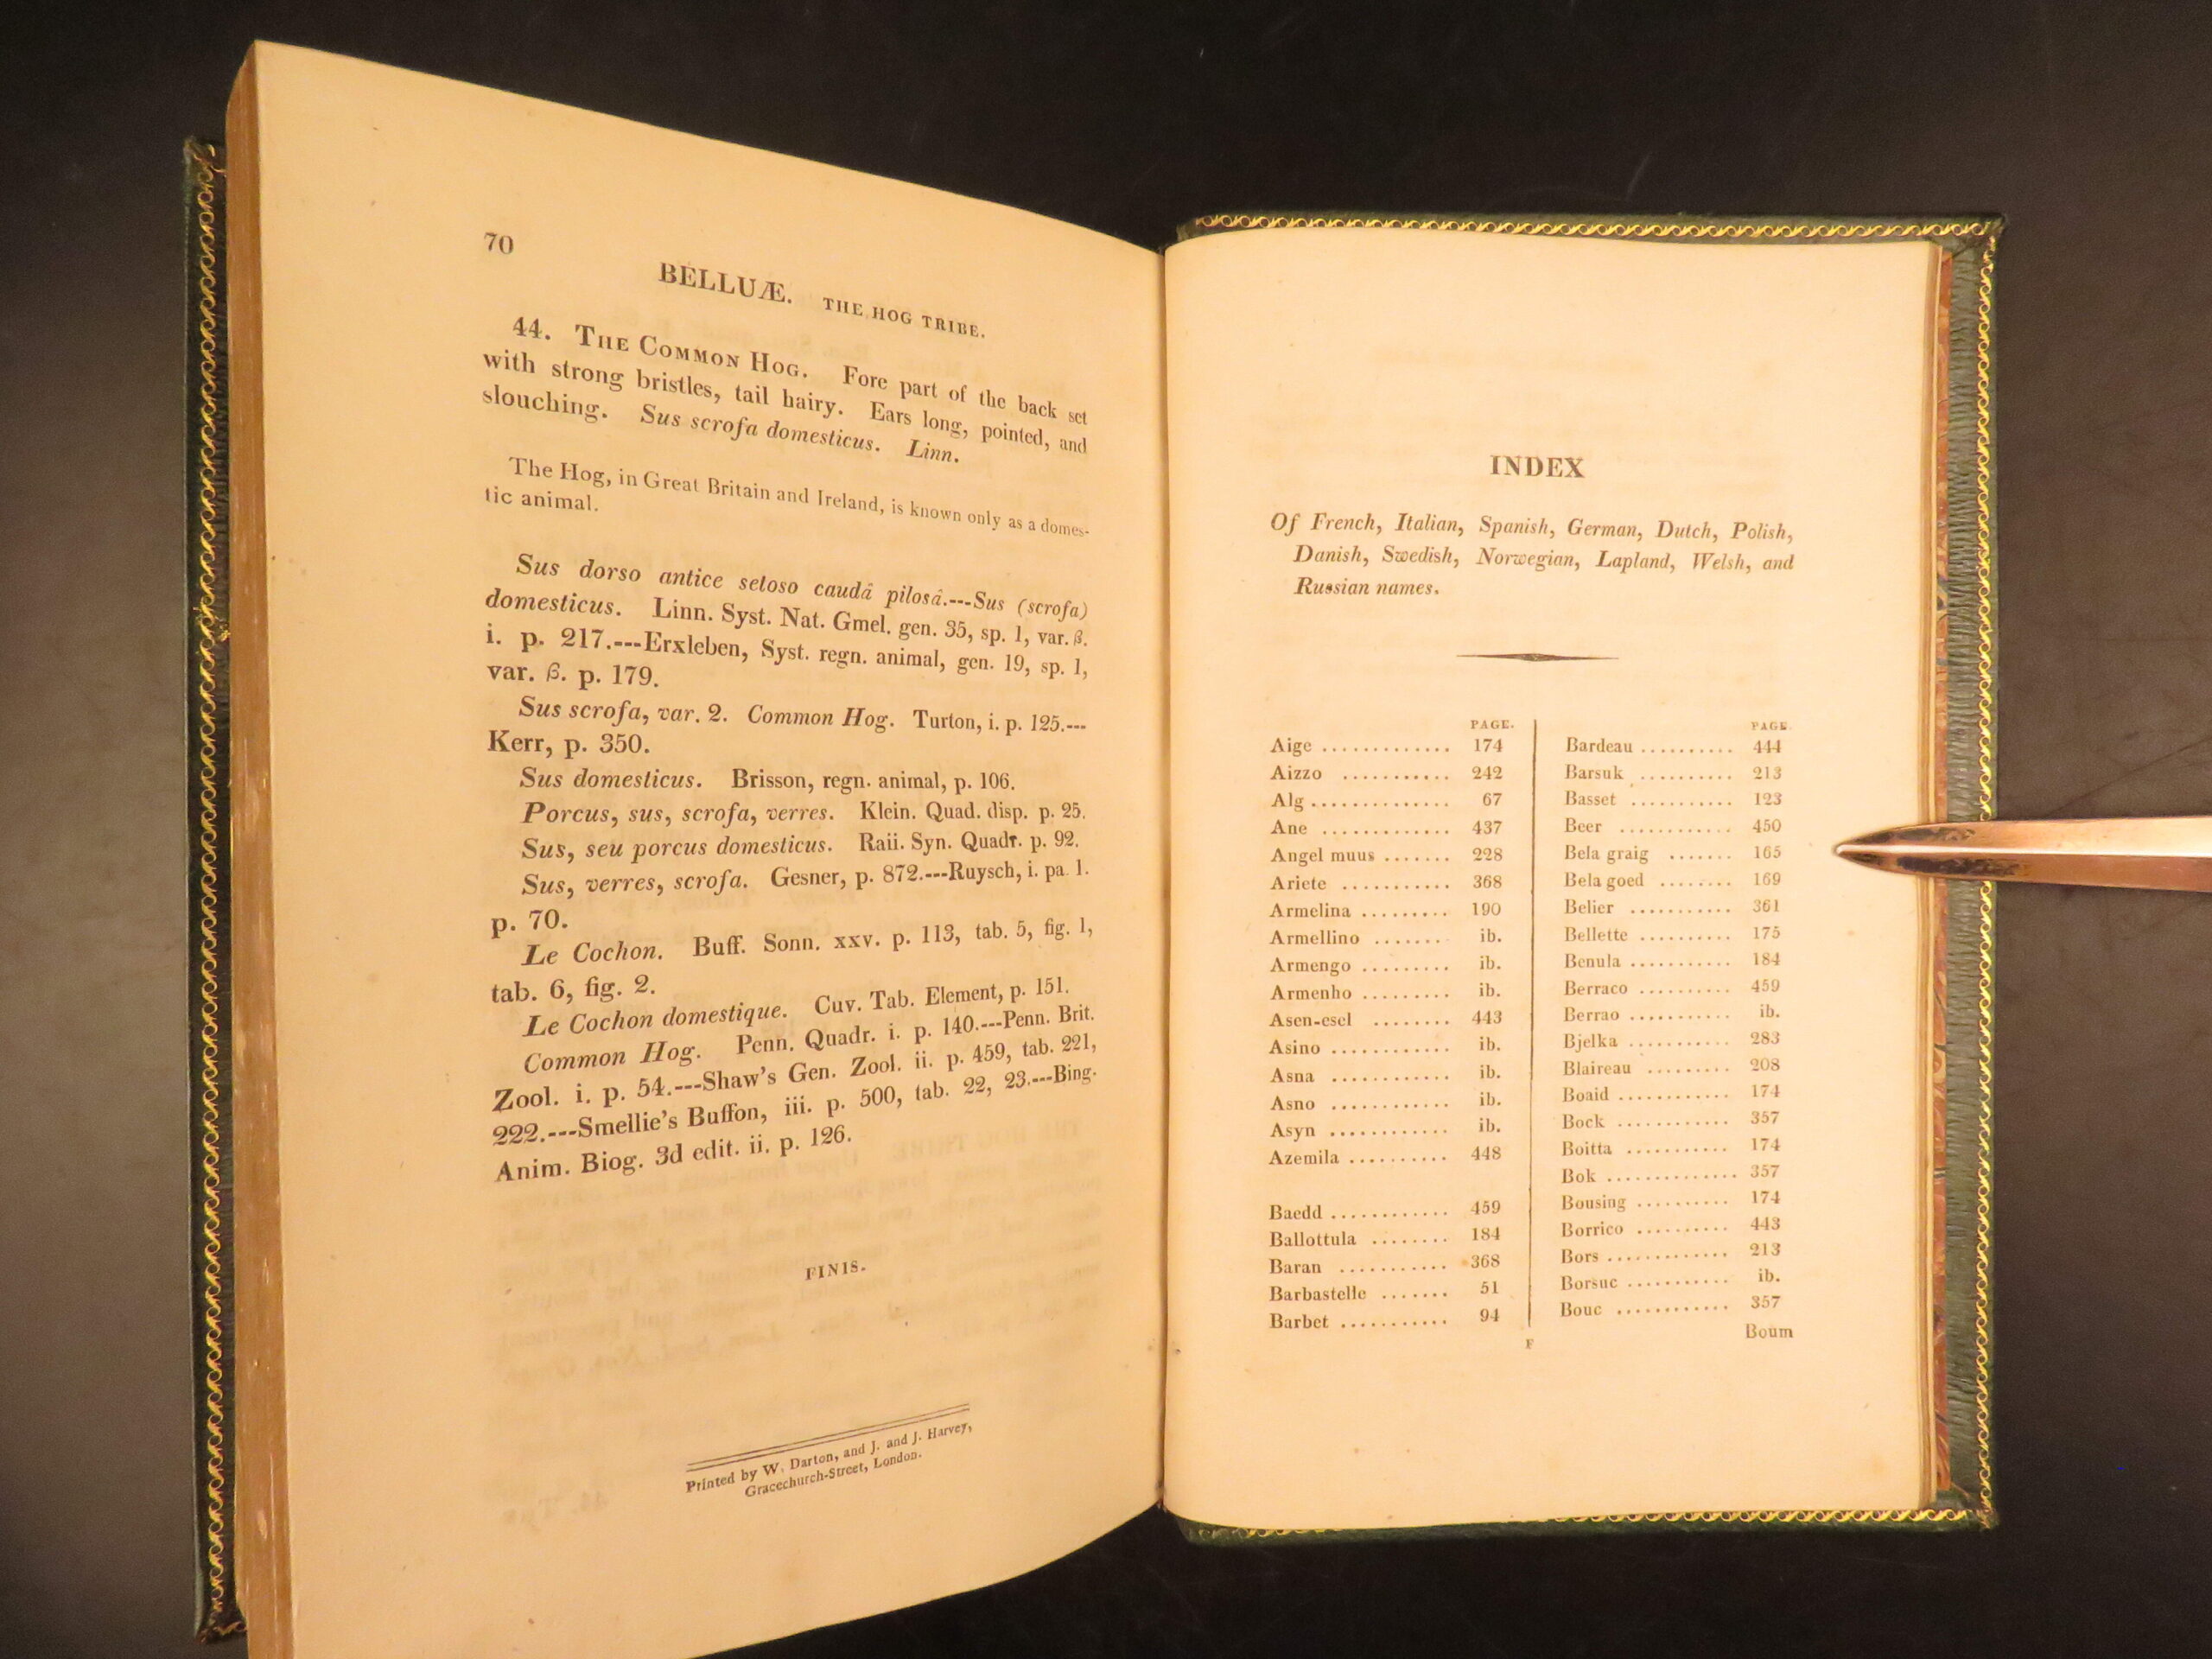 70
BELLUÆ. THE HOG TRIBE.
44. THE COMMON HOG. Fore part of the back set
with strong bristles, tail hairy. Ears long, pointed, and
slouching. Sus scrofa domesticus. Linn.
The Hog, in Great Britain and Ireland, is known only as a domes-
tic animal.
Sus dorso antice setoso caudâ pilosâ.---Sus (scrofa)
domesticus. Linn. Syst. Nat. Gmel. gen. 35, sp. 1, var. β.
i. p. 217.---Erxleben, Syst. regn. animal, gen. 19, sp. 1,
var. β. p. 179.
Sus scrofa, var. 2. Common Hog. Turton, i. p. 125.---
Kerr, p. 350.
Sus domesticus. Brisson, regn. animal, p. 106.
Porcus, sus, scrofa, verres. Klein. Quad. disp. p. 25.
Sus, seu porcus domesticus. Raii. Syn. Quadr. p. 92.
Sus, verres, scrofa. Gesner, p. 872.---Ruysch, i. pa. 1.
p. 70.
Le Cochon. Buff. Sonn. xxv. p. 113, tab. 5, fig. 1,
tab. 6, fig. 2.
Le Cochon domestique. Cuv. Tab. Element, p. 151.
Common Hog. Penn. Quadr. i. p. 140.---Penn. Brit.
Zool. i. p. 54.---Shaw's Gen. Zool. ii. p. 459, tab. 221,
222.---Smellie's Buffon, iii. p. 500, tab. 22, 23.---Bing.
Anim. Biog. 3d edit. ii. p. 126.
FINIS.
Printed by W. Darton, and J. and J. Harvey,
Gracechurch-Street, London.
INDEX
Of French, Italian, Spanish, German, Dutch, Polish,
Danish, Swedish, Norwegian, Lapland, Welsh, and
Russian names.
PAGE.
Aige ............. 174
Aizzo ........... 242
Alg .............. 67
Ane ............. 437
Angel muus ....... 228
Ariete ........... 368
Armelina ......... 190
Armellino ....... ib.
Armengo ......... ib.
Armenho ......... ib.
Asen-esel ........ 443
Asino ............ ib.
Asna ............ ib.
Asno ............ ib.
Asyn ............ ib.
Azemila .......... 448
Baedd ............ 459
Ballottula ........ 184
Baran ........... 368
Barbastelle ....... 51
Barbet ........... 94
PAGE.
Bardeau .......... 444
Barsuk .......... 213
Basset ........... 123
Beer ............ 450
Bela graig ....... 165
Bela goed ........ 169
Belier ........... 361
Bellette .......... 175
Benula ........... 184
Berraco .......... 459
Berrao ........... ib.
Bjelka ........... 283
Blaireau ......... 208
Boaid ............ 174
Bock ............ 357
Boitta ........... 174
Bok .............. 357
Bousing .......... 174
Borrico .......... 443
Bors ............. 213
Borsuc ........... ib.
Bouc ............ 357
F
Boum